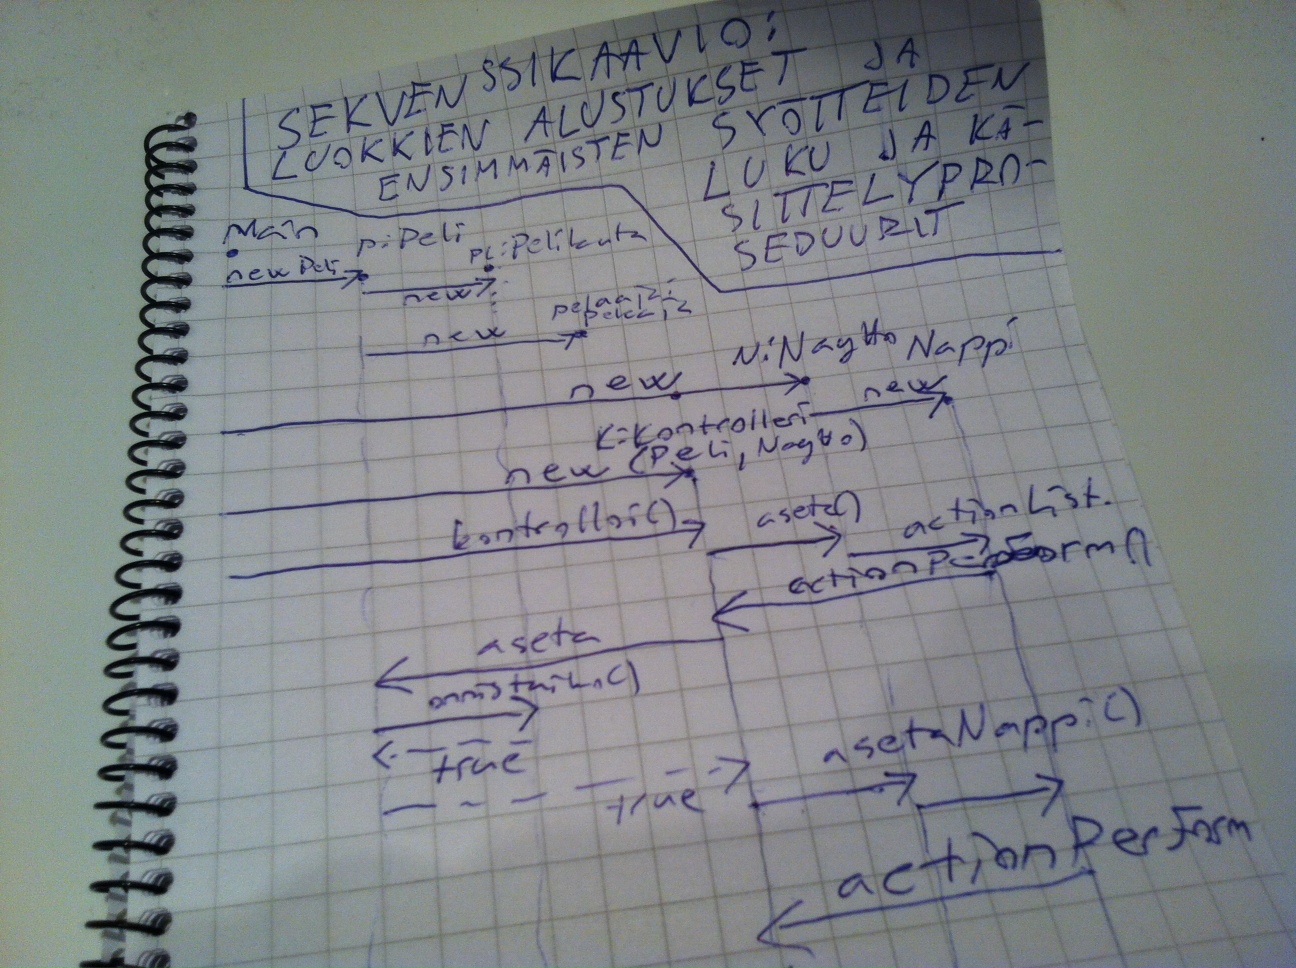 SEKVENSSIKAAVIO:
LUOKKIEN ALUSTUKSET JA
ENSIMMÄISTEN SYÖTTEIDEN
LUKU JA KÄ-
SITTELYPRO-
SEDUURIT
Main
p:Peli
pl:Pelilauta
new Peli
new
new
N:Naytto Nappi
new
new
K:Kontrolleri
new (Peli, Naytto)
kontrolloi()
aseta()
actionList.
actionPerform()
aseta
onnistuiko()
true
true
asetaNappi()
actionPerform